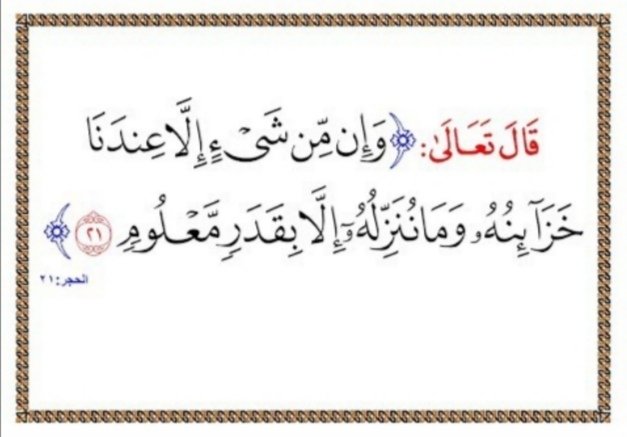 قَالَ تَعَالَىٰ: ﴿وَإِن مِّن شَىۡءٍ إِلَّا عِندَنَا
خَزَآئِنُهُۥ وَمَا نُنَزِّلُهُۥٓ إِلَّا بِقَدَرٖ مَّعۡلُومٖ ٢١﴾
الحجر: ٢١